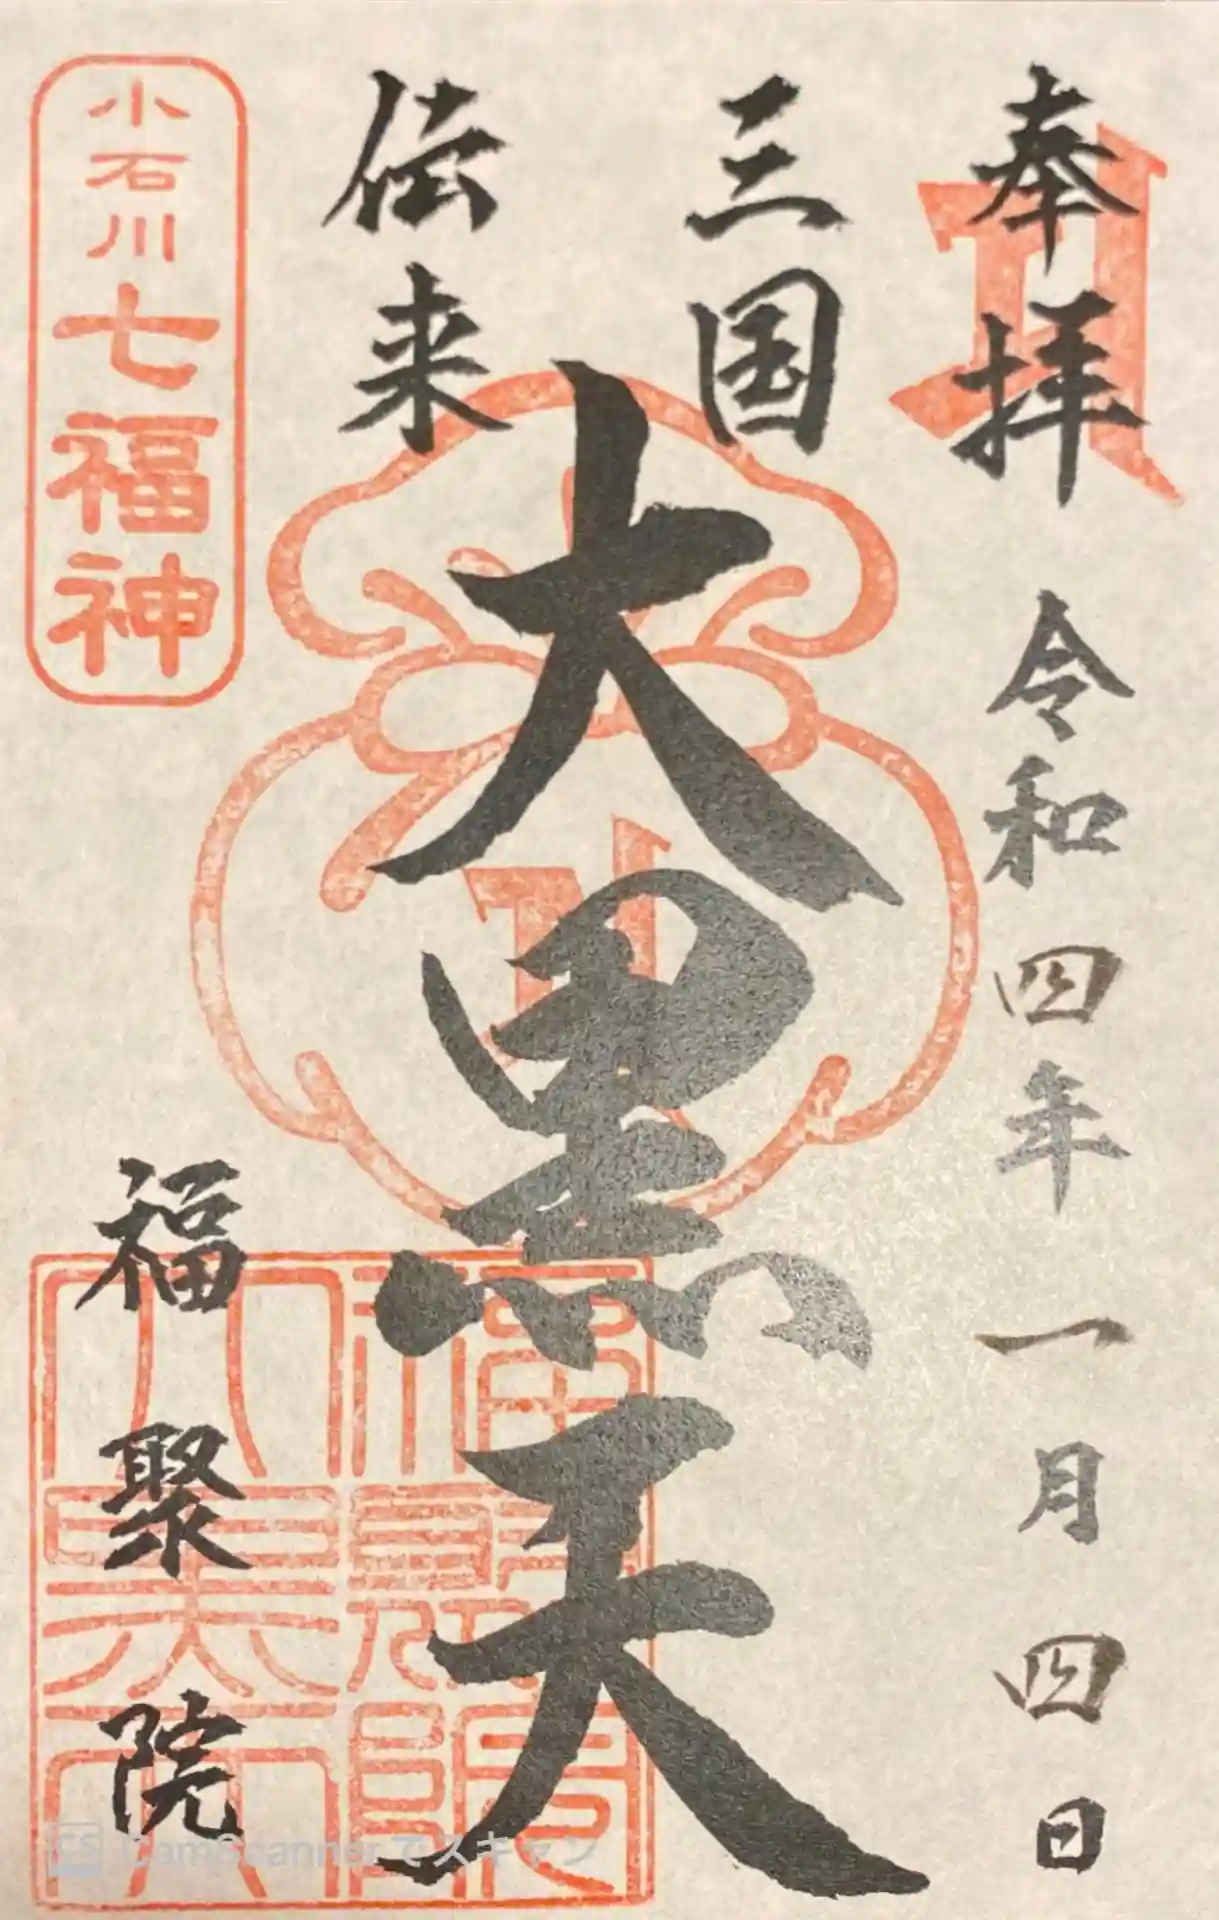 奉拝 令和四年一月四日
三国
伝来
大黒天
小石川七福神
福聚院
CamScannerでスキャン